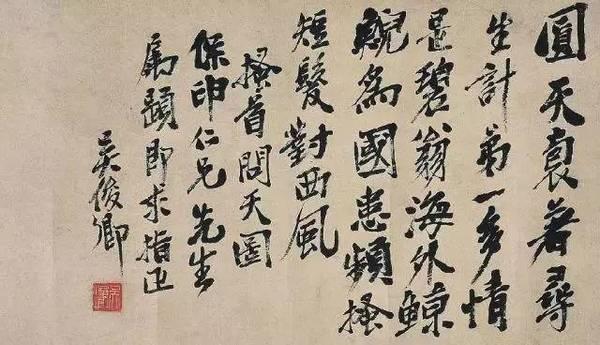 圓天裹著尋
生計第一多情
是碧翁海外鯨
鯢為國患頻搔
短髮對西風
搔首問天圖
保申仁兄先生
屬題即求指正
吳俊卿